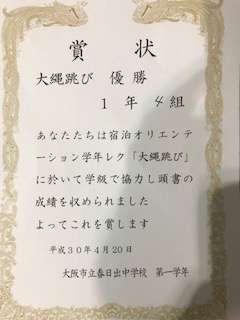 賞状
大縄跳び 優勝
1年4組
あなたたちは宿泊オリエンテ
ーション学年レク「大縄跳び」
に於いて学級で協力し頭書の
成績を収められました
よってこれを賞します
平成30年4月20日
大阪市立春日出中学校 第一学年